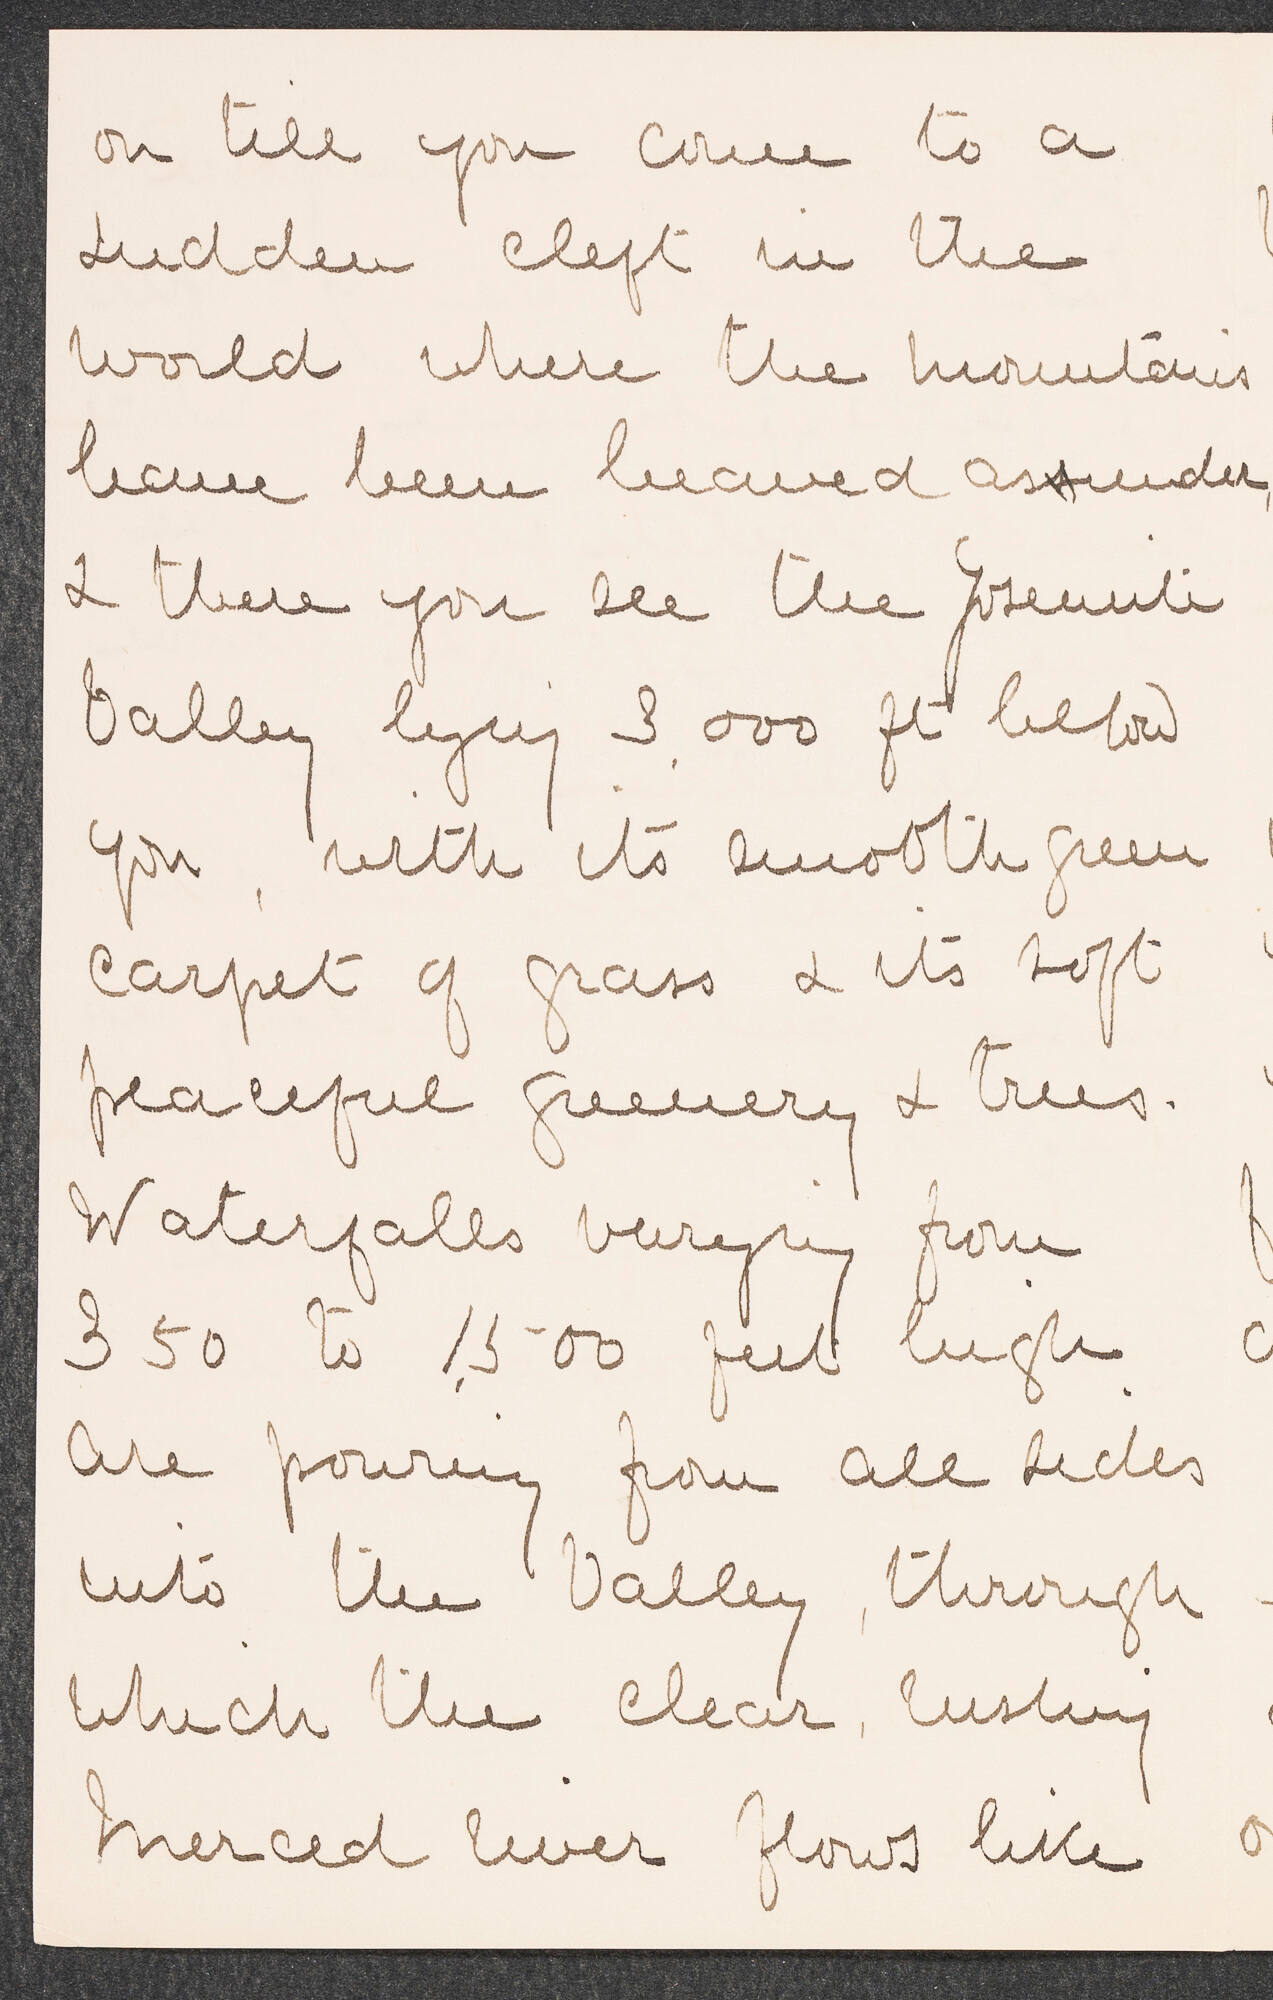 on till you come to a
sudden cleft in the
world where the mountains
have been heaved asunder,
& there you see the Yosemite
Valley lying 3,000 ft below
you, with its smooth green
carpet of grass & its soft
peaceful greenery & trees.
Waterfalls varying from
350 to 1,500 feet high
are pouring from all sides
into the Valley, through
which the clear, rushing
Merced river flows like